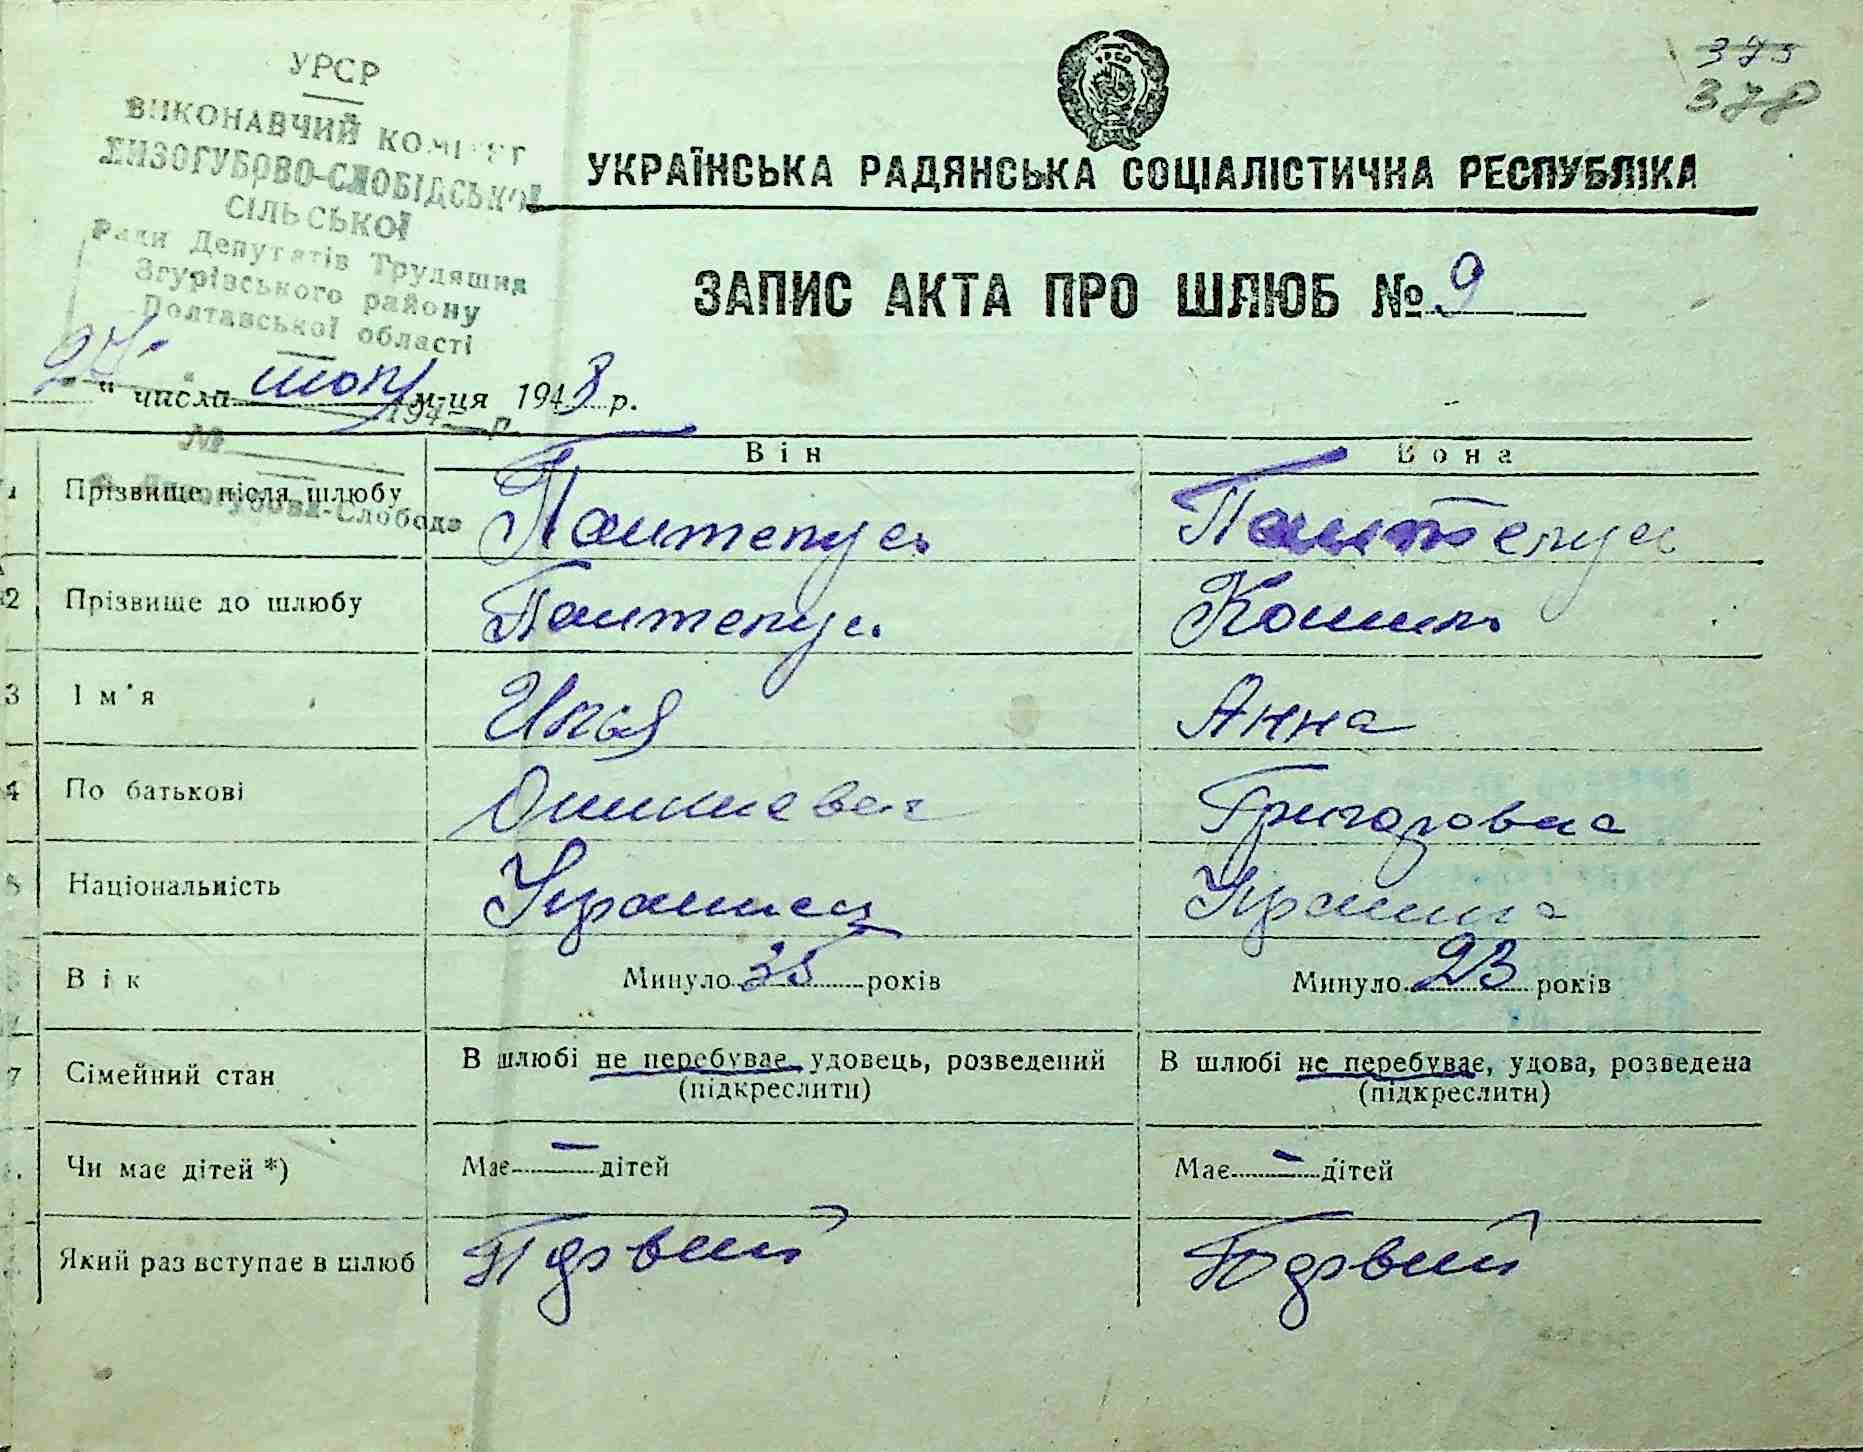 УРСР
ВИКОНАВЧИЙ КОМІТЕТ
ЛИЗОГУБОВО-СЛОБІДСЬКОЇ
СІЛЬСЬКОЇ
Ради Депутатів Трудящих
Згурівського району
Полтавської області
194 р.
№
375
378
УКРАЇНСЬКА РАДЯНСЬКА СОЦІАЛІСТИЧНА РЕСПУБЛІКА
ЗАПИС АКТА ПРО ШЛЮБ № 9
" числа м-ця 1948 р.
Він Вона
1 Прізвище після шлюбу
2 Прізвище до шлюбу
3 Ім'я Илья Анна
4 По батькові Григоровна
5 Національність Украинец Украинка
Вік Минуло 35 років Минуло 23 років
7 Сімейний стан В шлюбі не перебуває, удовець, розведений В шлюбі не перебуває, удова, розведена
(підкреслити) (підкреслити)
Чи має дітей *) Має — дітей Має — дітей
Який раз вступає в шлюб Первий Первий